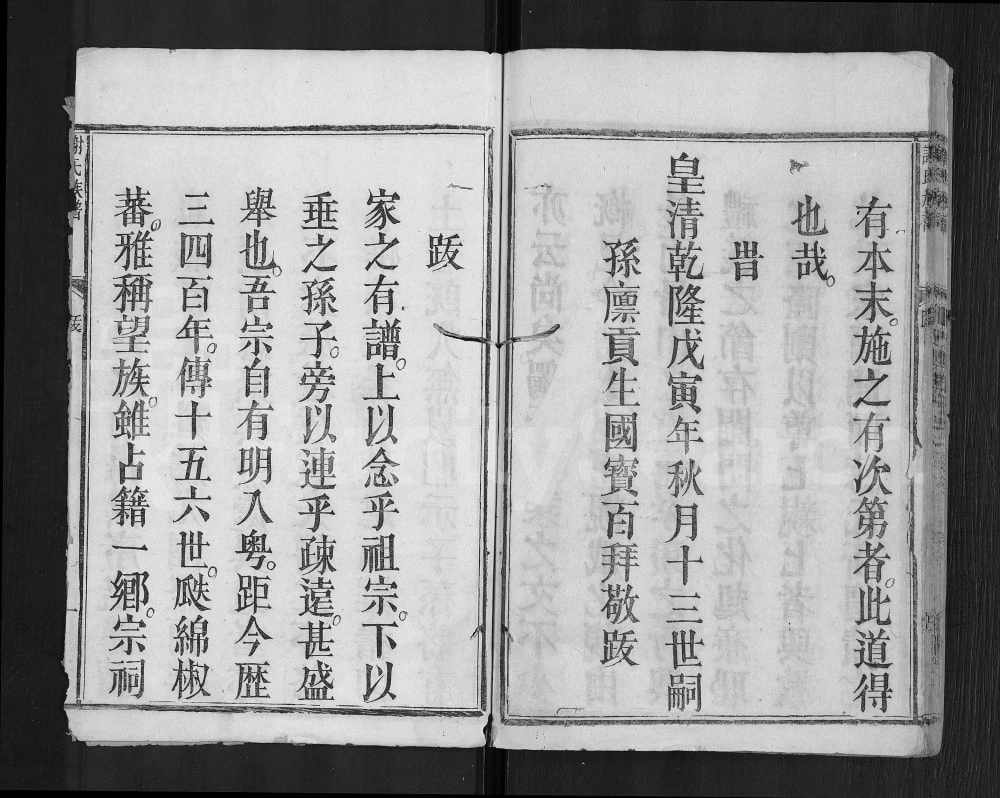 有本末。施之有次第者。此道得
也哉。
旹
皇清乾隆戊寅年秋月十三世嗣
孫廩貢生國寶百拜敬跋
跋
家之有譜。上以念乎祖宗。下以
垂之孫子。旁以連乎疎遠。甚盛
舉也。吾宗自有明入粵。距今歷
三四百年。傳十五六世。瓞綿椒
蕃。雅稱望族。雖占籍一鄉。宗祠
謝氏族譜
跋